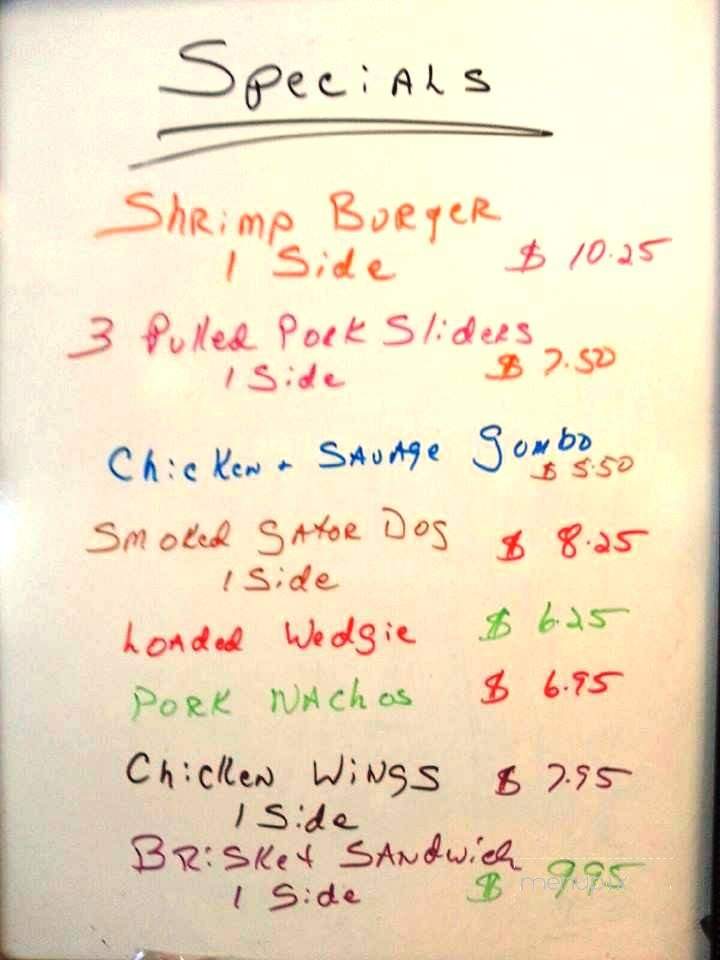 Specials
Shrimp Burger
1 Side $ 10.25
3 Pulled Pork Sliders
1 Side $ 7.50
Chicken + Sauage Gumbo
$ 5.50
Smoked Gator Dog $ 8.25
1 Side
Loaded Wedgie $ 6.25
Pork Nachos $ 6.95
Chicken Wings $ 7.95
1 Side
Brisket Sandwich
1 Side $ 9.95
menupix